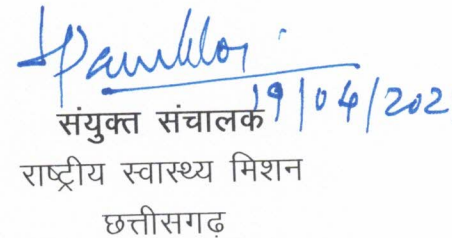 19/04/202
संयुक्त संचालक
राष्ट्रीय स्वास्थ्य मिशन
छत्तीसगढ़